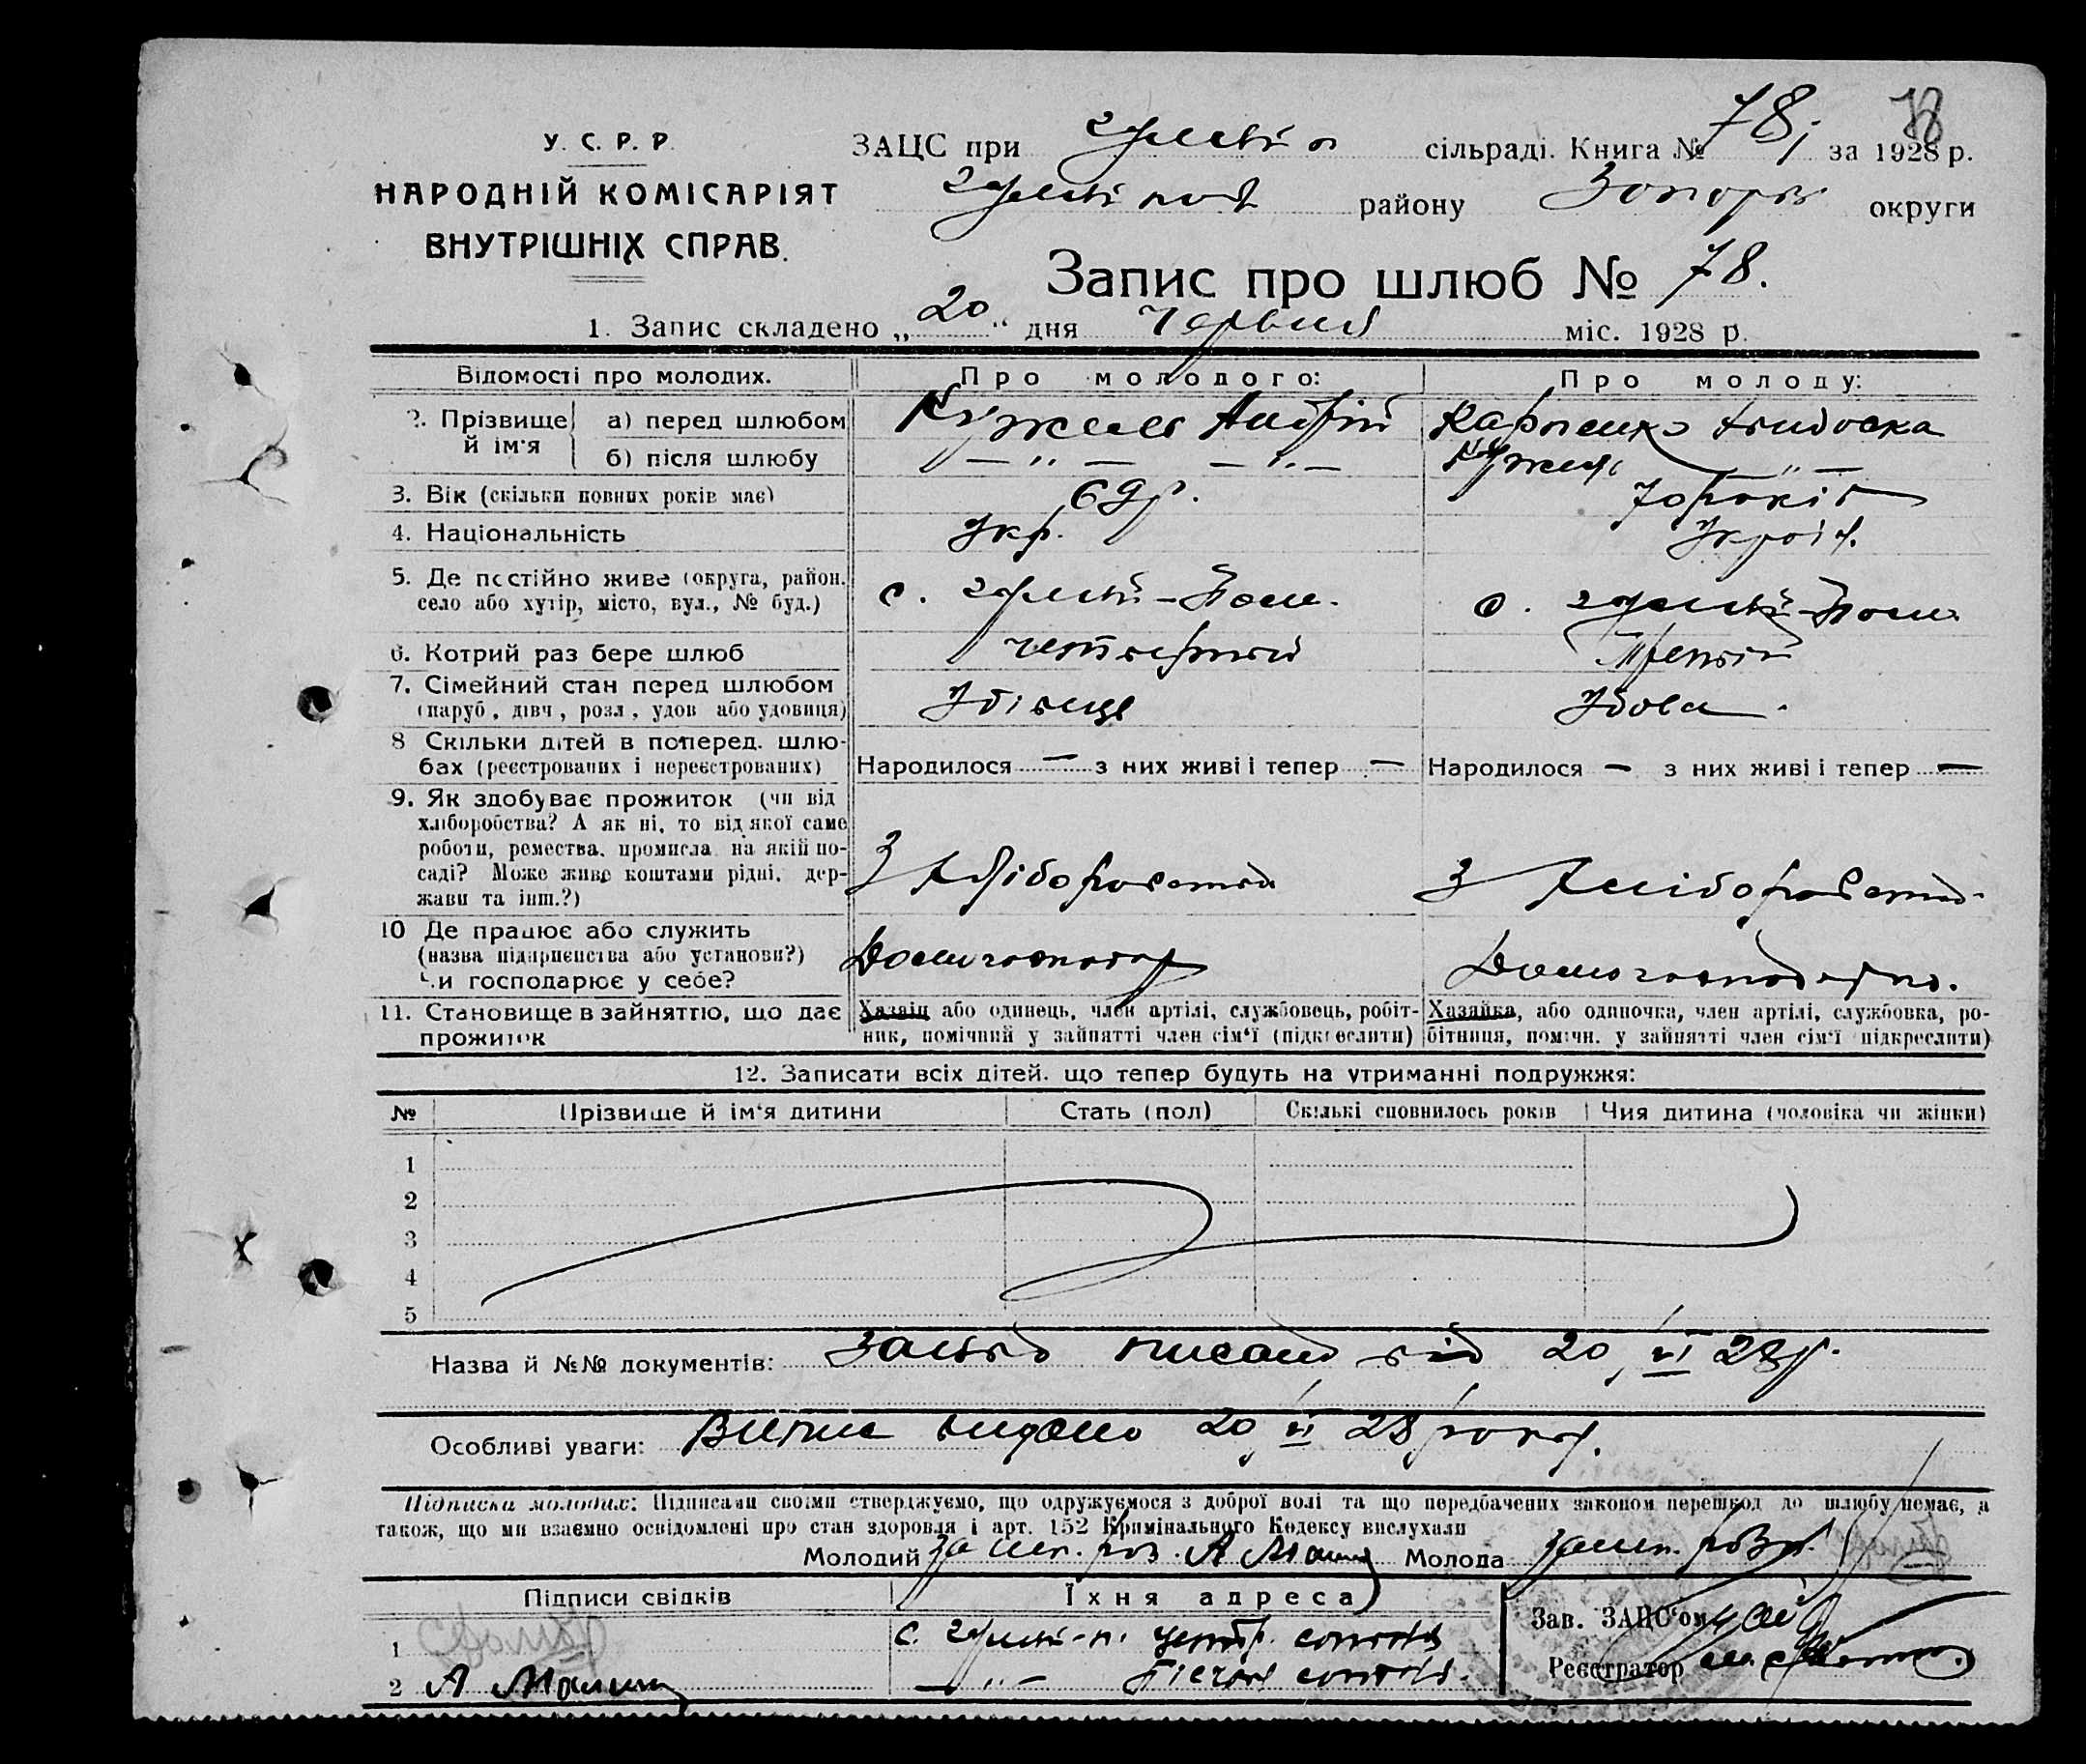 У. С. Р. Р.
НАРОДНІЙ КОМІСАРІЯТ
ВНУТРІШНІХ СПРАВ.
ЗАЦС при сільраді. Книга № 78 за 1928 р.
району Запоріз округи
Запис про шлюб № 78.
1. Запис складено „20" дня Червня міс. 1928 р.
Відомості про молодих. Про молодого: Про молоду:
2. Прізвище й ім'я а) перед шлюбом Кужель Андрій Карпенко
б) після шлюбу — „ — — „ — Кужель — „ —
3. Вік (скільки повних років має) 69 р. 70 років
4. Національність Укр. Україн.
5. Де постійно живе (округа, район, село або хутір, місто, вул., № буд.) с. с.
6. Котрий раз бере шлюб четвертий Третій
7. Сімейний стан перед шлюбом (паруб., дівч., розл., удов. або удовиця) Удівець Удова.
8 Скільки дітей в поперед. шлюбах (реєстрованих і нереєстрованих) Народилося — з них живі і тепер — Народилося — з них живі і тепер —
9. Як здобуває прожиток (чи від
хліборобства? А як ні, то від якої саме
роботи, ремества, промисла на якій посаді? Може живе коштами рідні, держави та інш.?) З хліборобства З хліборобства
10 Де працює або служить
(назва підприємства або установи?)
Чи господарює у себе? Домогосподар Домогосподарка.
11. Становище в зайняттю, що дає прожиток
Хазяїн або одинець, член артілі, службовець, робітник, помічний у зайнятті член сім'ї (підкреслити)
Хазяйка, або одиночка, член артілі, службовка, робітниця, помічн. у зайнятті член сім'ї (підкреслити)
12. Записати всіх дітей, що тепер будуть на утриманні подружжя:
№ Прізвище й ім'я дитини Стать (пол) Скількі сповнилось років Чия дитина (чоловіка чи жінки)
1
2
3
4
5
Назва й №№ документів: від 20/VI 28 р.
Особливі уваги: Витяг видано 20/VI 28 року.
Підписка молодих: Підписами своїми стверджуємо, що одружуємося з доброї волі та що передбачених законом перешкод до шлюбу немає, а
також, що ми взаємно освідомлені про стан здоровля і арт. 152 Крімінального Кодексу вислухали
Молодий за неп. роз. А Молода за неп. розп.
Підписи свідків Їхня адреса
1 с. центр. сотня
2 А — „ — сотня.
Зав. ЗАЦС'ом
Реєстратор